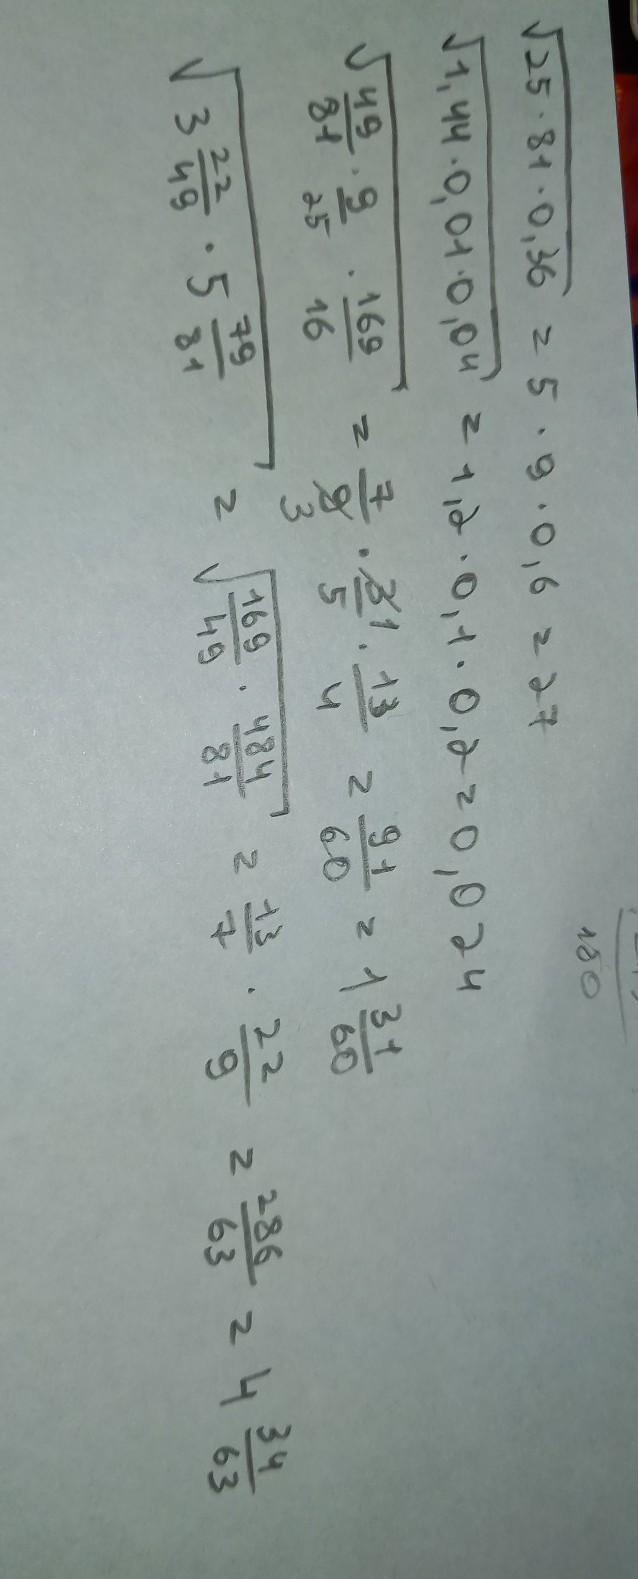 √25·81·0,36 = 5·9·0,6 = 27
√1,44·0,01·0,04 = 1,2·0,1·0,2 = 0,024
√49/81 · 9/25 · 169/16 = 7/9 3 · 3 1/5 · 13/4 = 91/60 = 1 31/60
√3 22/49 · 5 79/81 = √169/49 · 484/81 = 13/7 · 22/9 = 286/63 = 4 34/63
180